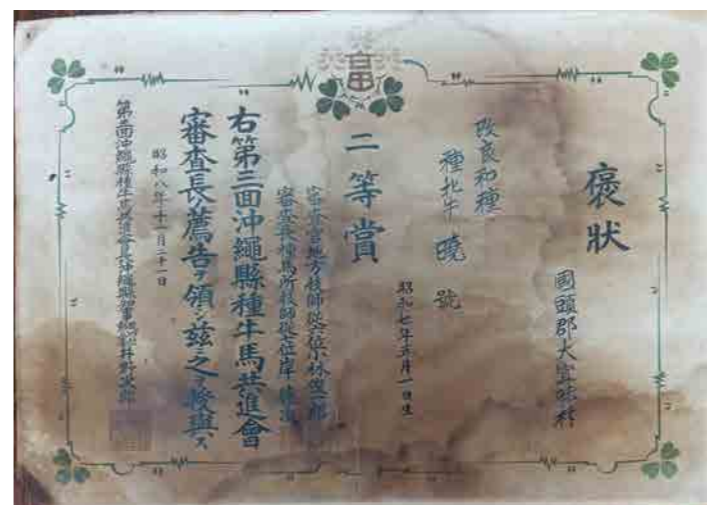 畜
褒狀
國頭郡大宜味村
改良和種
種牝牛 曉號
昭和七年六月一日生
二等賞
審査官地方技師從六位小林俊二郎
審査長種馬所技師從七位岸
右第三囬沖繩縣種牛馬共進會
審査長ノ薦告ヲ領シ兹ニ之ヲ授與ス
昭和八年十一月二十一日
第三囬沖繩縣種牛馬共進會長沖繩縣知事 井野次郎